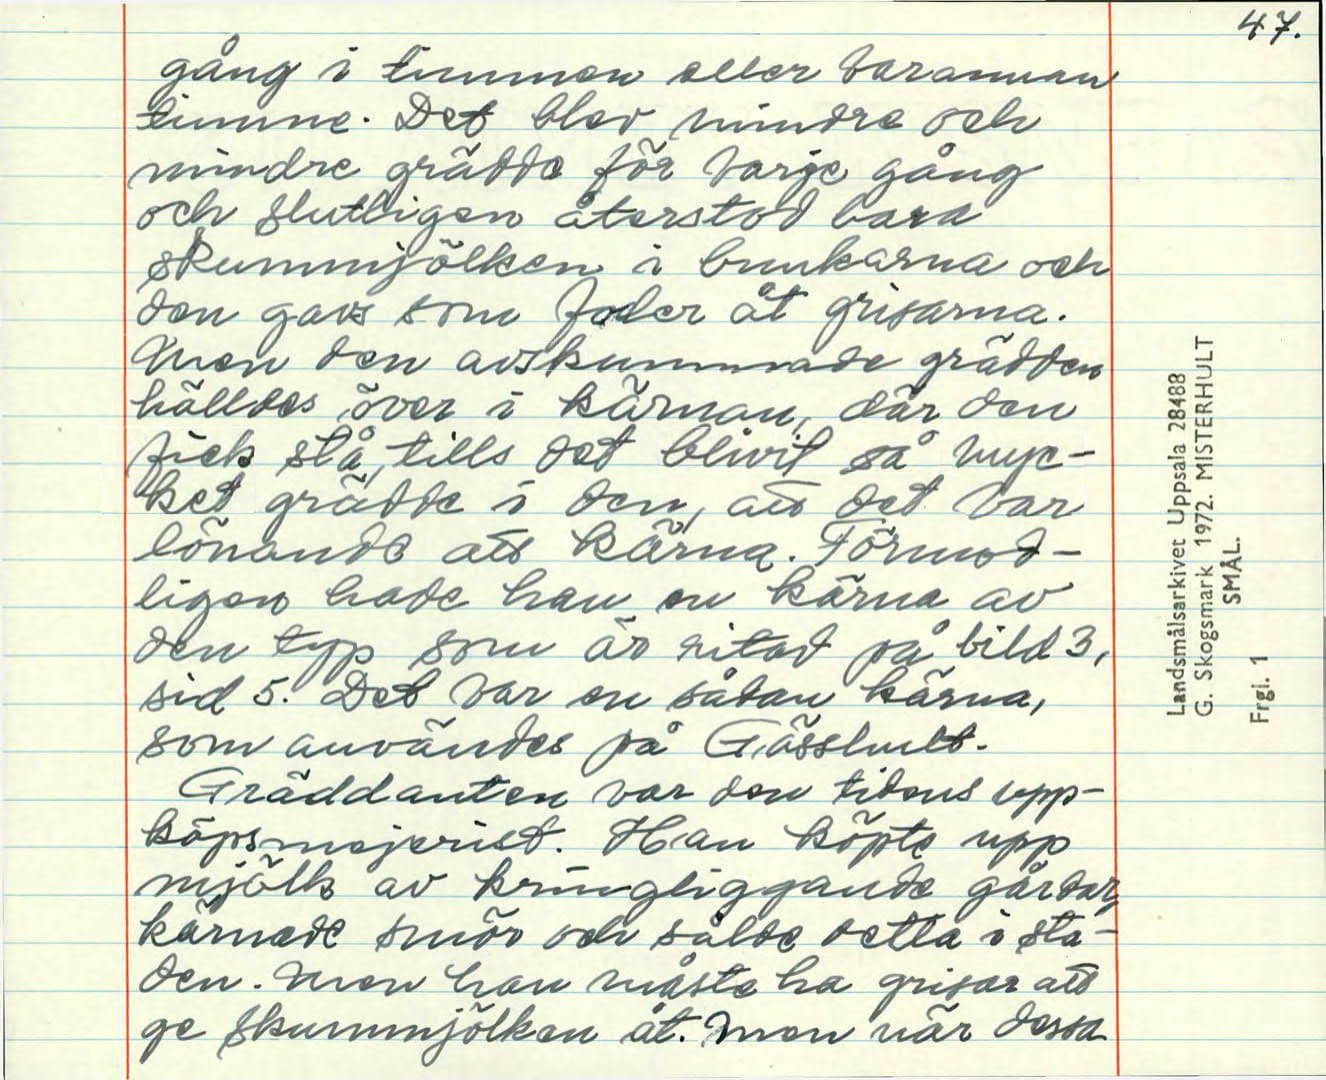 47.
gång i timmen eller varannan
timme. Det blev mindre och
mindre grädde för varje gång
och slutligen återstod bara
skummjölken i bunkarna och
den gavs som foder åt grisarna.
Men den avskummade grädden
hälldes över i kärnan, där den
fick stå, tills det blivit så myc-
ket grädde i den, att det var
lönande att kärna. Förmod-
ligen hade han en kärna av
den typ som är ritad på bild 3,
sid 5. Det var en sådan kärna,
som användes på Gässhult.
Gräddanten var den tidens upp-
köpsmejerist. Han köpte upp
mjölk av kringliggande gårdar,
kärnade smör och sålde detta i sta-
den. Men han måste ha grisar att
ge skummjölken åt. Men när dessa
Landsmålsarkivet Uppsala 28488
G. Skogsmark 1972. MISTERHULT
SMÅL.
Frgl. 1